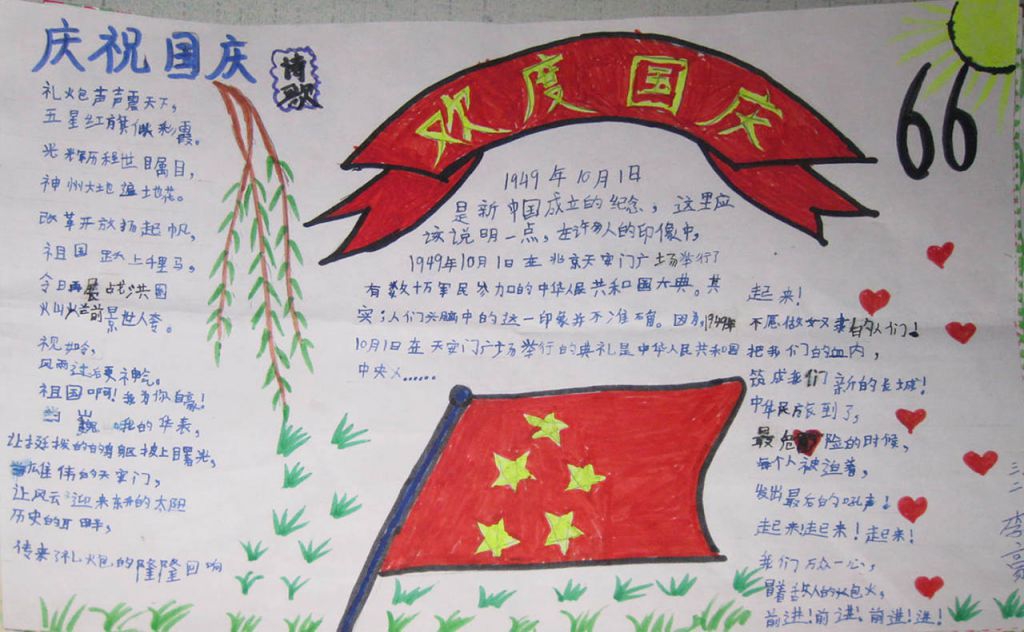 庆祝国庆
诗歌
礼炮声声震天下,
五星红旗做彩霞。
光辉历程世瞩目,
神州大地遍地花。
改革开放扬起帆,
祖国跃上千里马,
今日再展战洪图
火山 前景世人夸。
祝
风雨过后更神
祖国啊!我为你自豪!
巍 的华表,
让挺拔的 披上曙光,
雄伟的天安门,
让风云 迎来东升的太阳
历史的
传来了礼炮的隆隆回响
欢度国庆
66
1949年10月1日
是新中国成立的纪念,这里应
该说明一点,在许多人的印像中,
1949年10月1日在北京天安门广场举行了
有数十万军民参加的中华人民共和国大典。其
实;人们头脑中的这一印象并不准确。因为1949年
10月1日在天安门广场举行的典礼是中华人民共和国
中央义……
起来!
不愿做奴隶的人们!
把我们的血肉,
筑成我们新的长城!
中华民族到了,
最危险的时候,
每个人被迫着,
发出最后的吼声!
起来!起来!起来!
我们万众一心,
冒着敌人的炮火,
前进!前进!前进!进!
三二